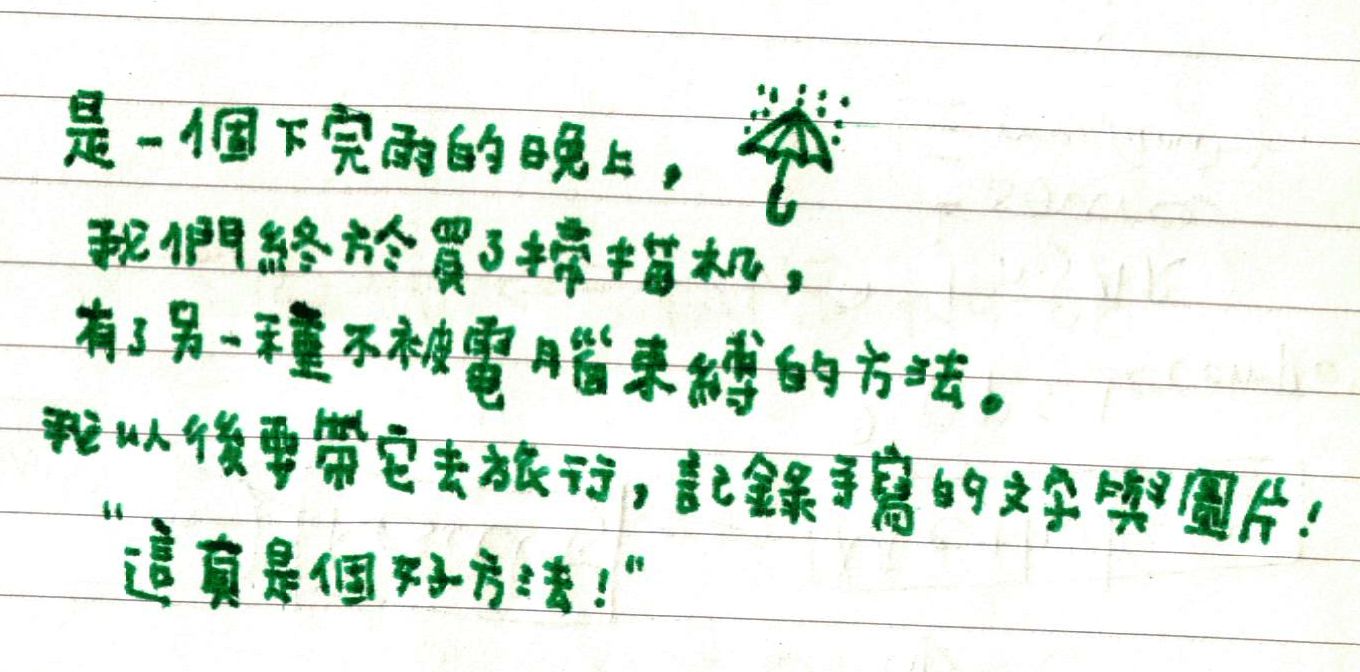 是一個下完雨的晚上，
我們終於買了掃描机，
有了另一種不被電腦束縛的方法。
我以後要帶它去旅行，記錄手寫的文字與圖片！
"這真是個好方法！"